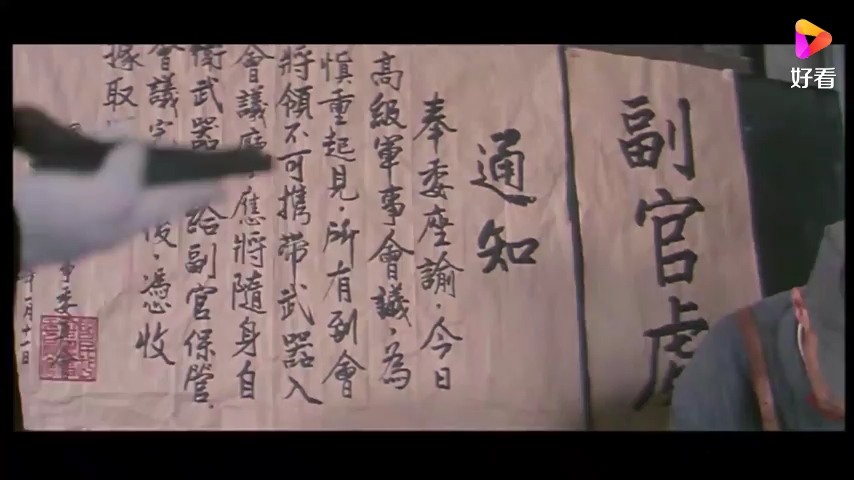 好看
副官處
通知
奉委座諭.今日
高級軍事會議,為
慎重起見.所有到會
將領不可携带武器入
會議應將隨身自
衛武器給副官保管.
會議完後,憑收
據取
事委員會
年一月十一日